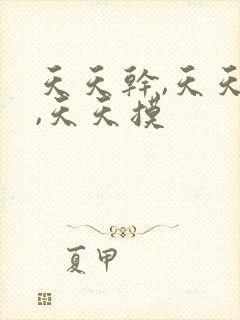 天天幹,天天
,天天摸
夏甲